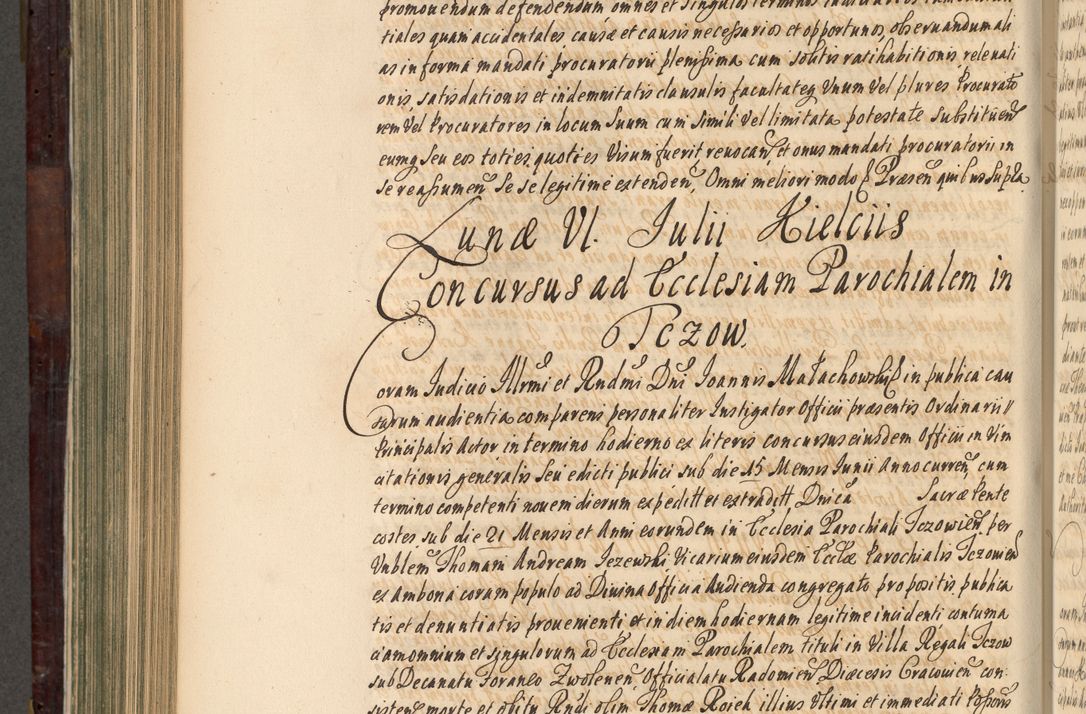 promouendum defendendum omnes et singulos terminos
tiales quam accidentales causæ et causis necessarios et opportunos, obseruandum ali
as in forma mandati procuratorii plenissima cum solitis ratihabitionis releuati
onis, satisdationis et indemnitatis clausulis facultateq Vnum Vel plures Procurato
rem Vel Procuratores in locum suum cum simili Vel limitata potestate substituen
eumq seu eos toties quoties Visum fuerit reuocan et onus mandati procuratorii in
se reassumen se se legitime extenden, Omni meliori modo Præsen quibus supra
Lunæ VI. Iulii Kielciis
Concursus ad Ecclesiam Parochialem in
Tczow.
Coram Iudicio Illrmi et Rndmi Dni Ioannis Małachowski in publica cau
sarum audientia comparens personaliter Instigator Officii præsentis Ordinarii
Principalis Actor in termino hodierno ex literis concursus eiusdem Officii in Vim
citationis generalis seu edicti publici sub die 15 Mensis Iunii Anno curren cum
termino competenti nouem dierum expeditt et extraditt Dnica Sacræ Pente
costes sub die 21 Mensis et Anni eorundem in Ecclesia Parochiali Tczowien per
Vnblem Thomam Andream Jezewski Vicarium eiusdem Ecclæ Parochialis Tczowien
ex Ambona coram populo ad Diuina Officia Audienda congregato propositis publica
tis et denuntiatis prouenienti et in diem hodiernam legitime incidenti contuma
ciam omnium et singulorum ad Ecclesiam Parochialem tituli in Villa Regali Tczow
sub Decanatu Foraneo Zwolenen, Officialatu Radomien Diæcesis Cracouien con
sisten morte et obitu Rndi olim Thomæ Roieh illius Vltimi et immediati Possoris